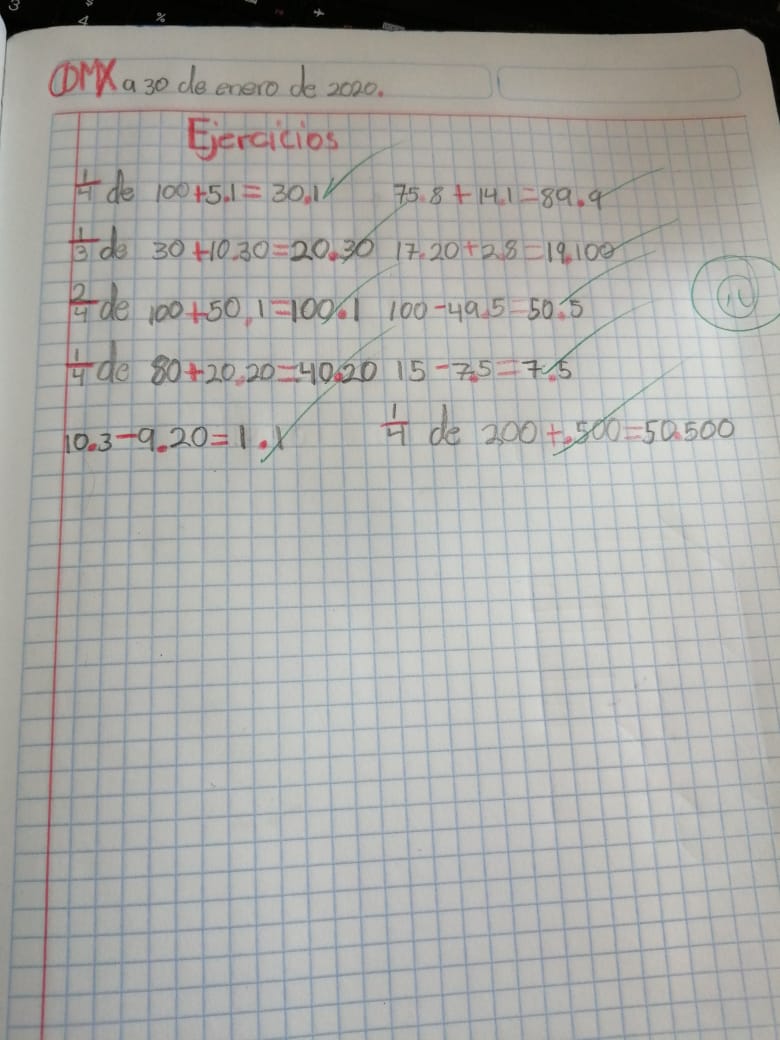 CDMX a 30 de enero de 2020.
Ejercicios
1/4 de 100+5.1=30.1 75.8+14.1=89.9
1/3 de 30+10.30=20.30 17.20+2.8=19.100
2/4 de 100+50.1=100.1 100-49.5=50.5
1/4 de 80+20.20=40.20 15-7.5=7.5
10.3-9.20=1.1 1/4 de 200+.500=50.500